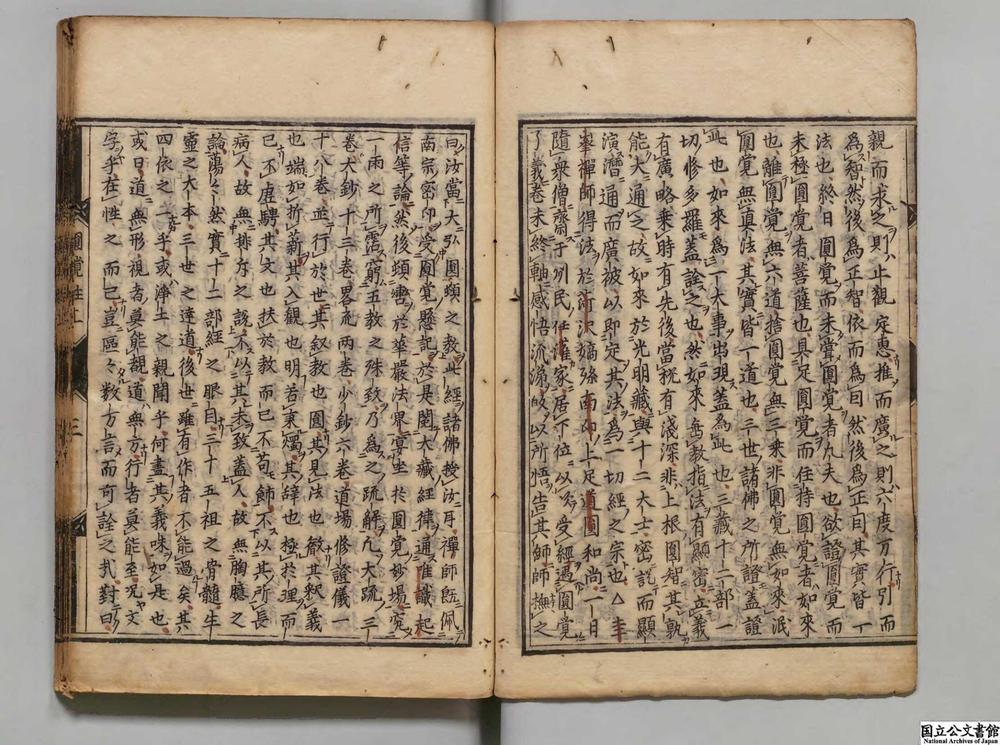 親而求之則止觀定惠推而廣之則六度万行引而
爲智然後爲正智依而爲因然後爲正因其實皆一
法也終日圓覺而未甞圓覺者凡夫也欲證圓覺而
未極圓覺者菩薩也具足圓覺而住持圓覺者如來
也離圓覺無六道捨圓覺無三乘非圓覺無如來泯
圓覺無真法其實皆一道也三世諸佛之所證蓋證
此也如來爲一大事出現蓋爲此也三藏十二部一
切修多羅蓋詮之也然如來垂教指法有顯密立義
有廣略乘時有先後當機有淺深非上根圓智其孰
能大通之故如來於光明藏與十二大士密說而顯
演潛通而廣被以印定其法爲一切經之宗也△圭
峯禪師得法於荷沢嫡孫南印上足道圓和尚一日
隨衆僧齋于州民任灌家居下位以次受經遇圓覺
了義卷末終軸感悟流涕皈以所悟告其師師撫之
曰汝當大弘圓頓之教此經諸佛授汝耳禪師既佩
南宗密印受圓覺懸記於是閲大藏經律通唯識起
信等論然後頓轡於華嚴法界宴坐於圓覺妙場究
一雨之所霑窮五教之殊致乃爲之疏解凡大疏三
卷大鈔十三卷畧疏兩卷少鈔六卷道場修證儀一
十八卷並行於世其叙教也圓其見法也徹其釈義
也端如折薪其入觀也明若秉燭其辞也極於理而
已不虛騁其文也扶於教而已不苟飾不以其所長
病人故無排斥之說不以其未致蓋人故無胸臆之
論蕩々然實十二部經之眼目三十五祖之骨髓生
靈之大本三世之達道後世雖有作者不能過矣其
四依之一乎或淨土之親聞乎何盡其義味如是也
或曰道無形視者莫能覩道無方行者莫能至況文
字乎在性之而已豈區々数方言而可詮之哉對曰
圓覺註上 三
国立公文書館
National Archives of Japan